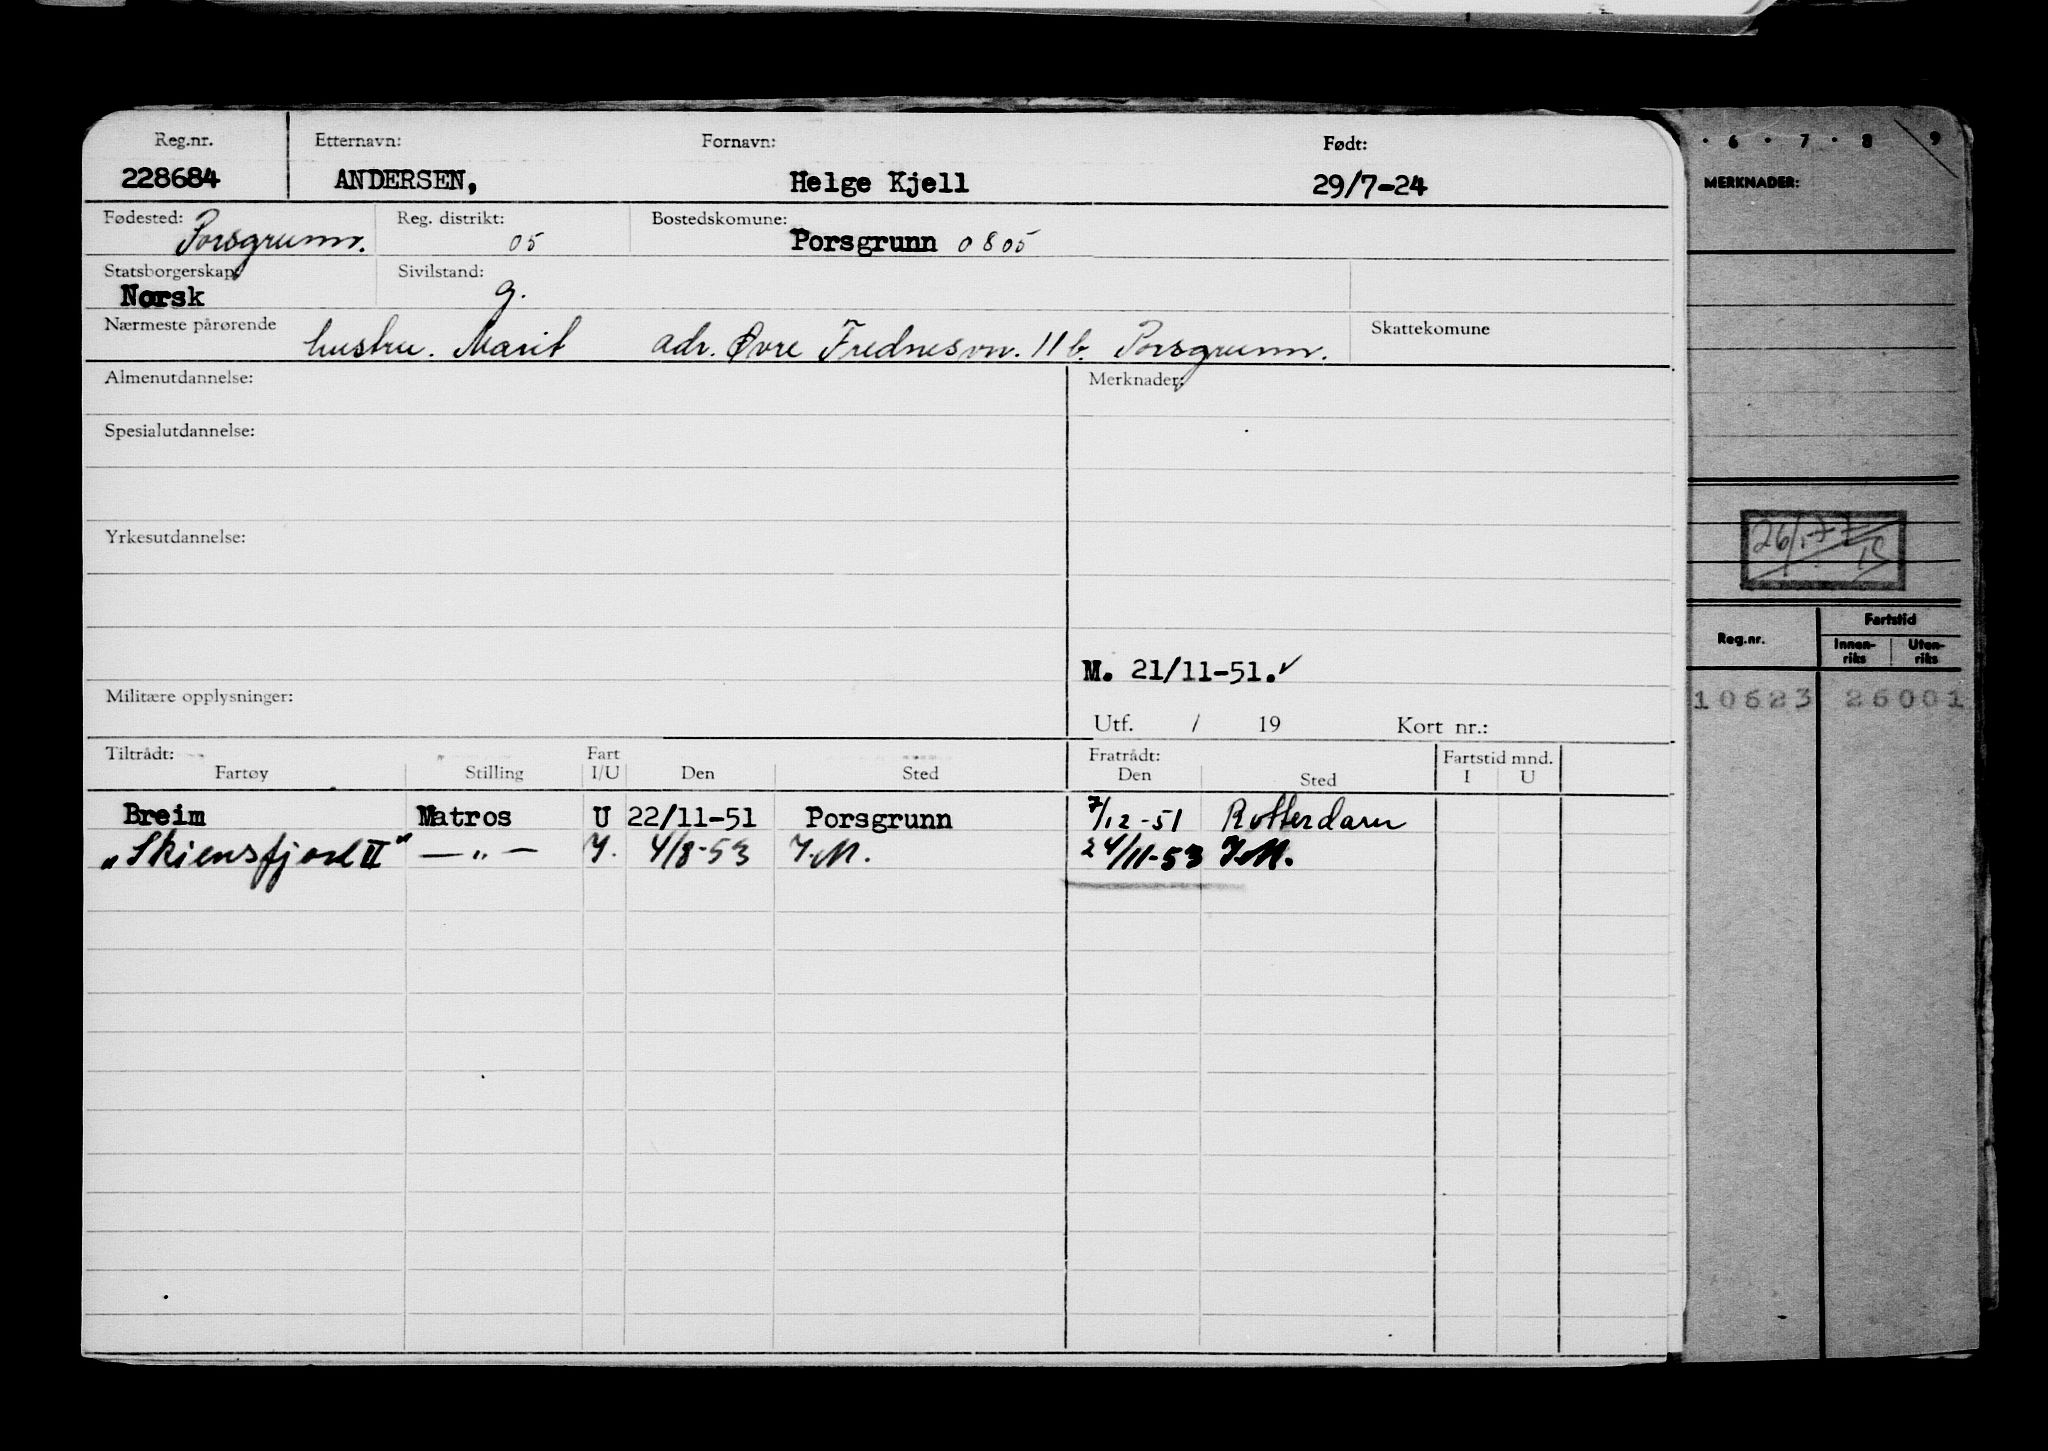 Reg.nr. Etternavn: Fornavn: Født:
228684 ANDERSEN, Helge Kjell 29/7-24
Fødested: Porsgrunn. Reg. distrikt: 05 Bostedskomune: Porsgrunn 0805
Statsborgerskap: Norsk Sivilstand: g.
Nærmeste pårørende hustru. Marit adr. Øvre Frednesvn. 11b. Porsgrunn. Skattekomune
Almenutdannelse: Merknader:
Spesialutdannelse:
Yrkesutdannelse:
M. 21/11-51.✓
Militære opplysninger:
Utf. / 19 Kort nr.:
Tiltrådt: Fart Fratrådt: Fartstid mnd.
Fartøy Stilling I/U Den Sted Den Sted I U
Breim Matros U 22/11-51 Porsgrunn 7/12-51 Rotterdam
"Skiensfjord II" —"— 4/8-53 24/11-53
· 6 · 7 · 8 9
MERKNADER:
Reg.nr. Fartstid
Innen-riks Uten-riks
10623 26001